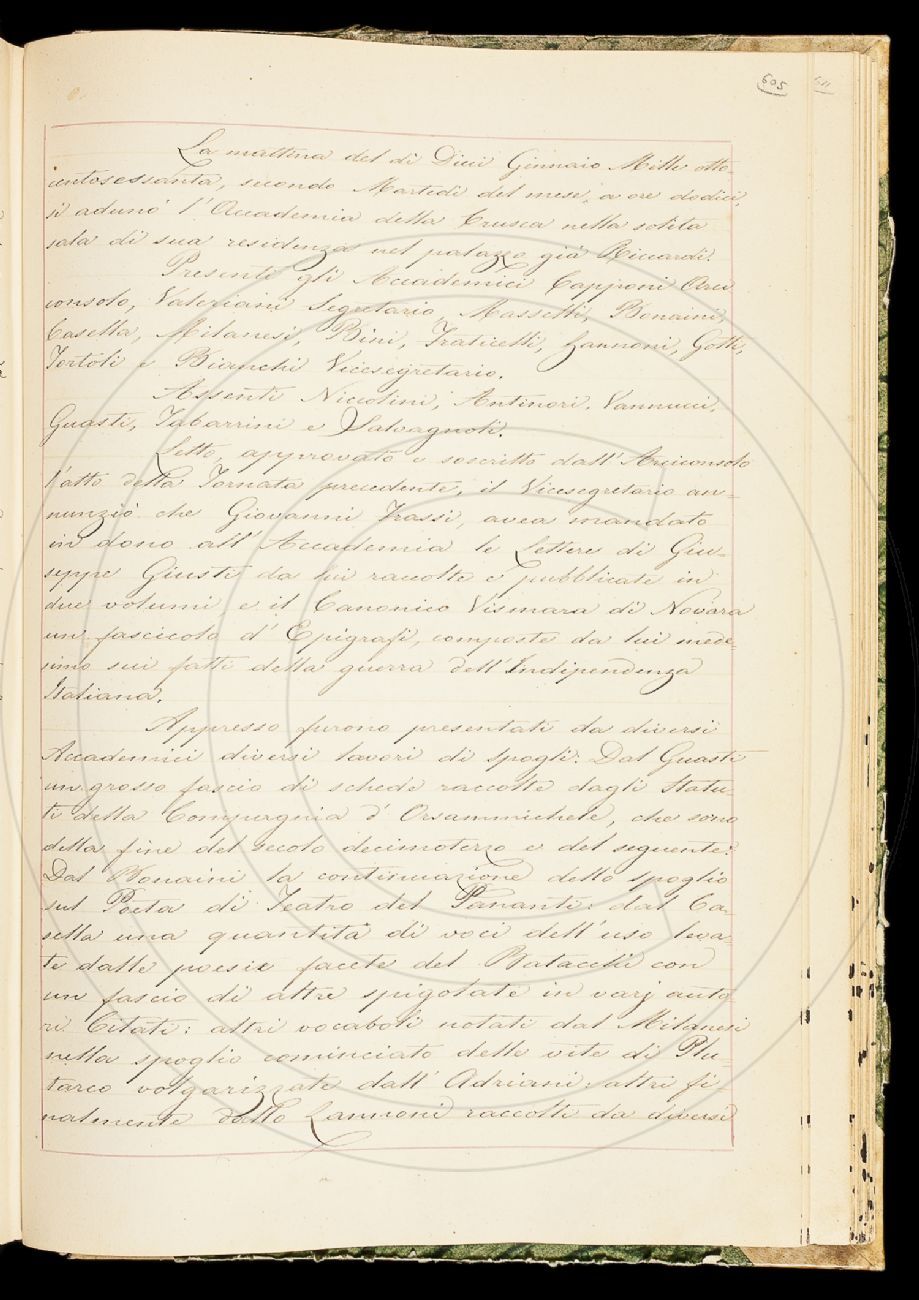 605
La mattina del dì Dieci Gennaio Mille otto-
centosessanta, secondo Martedì del mese, a ore dodici,
si adunò l'Accademia della Crusca nella solita
sala di sua residenza nel palazzo già Riccardi.
Presenti gli Accademici Capponi Arci-
consolo, Valeriani Segretario, Masselli, Bonaini,
Casella, Milanesi, Bini, Fraticelli, Zannoni, Gotti,
Tortoli e Bianchi Vicesegretario.
Assenti Niccolini, Antinori, Vannucci,
Guasti, Tabarrini e Salvagnoli.
Letto, approvato e soscritto dall'Arciconsolo
l'atto della Tornata precedente, il Vicesegretario an-
nunziò che Giovanni Frassi, avea mandato
in dono all'Accademia le Lettere di Giu-
seppe Giusti da lui raccolte e pubblicate in
due volumi, e il Canonico Vismara di Novara
un fascicolo d'Epigrafi, composte da lui mede-
simo sui fatti della guerra dell'Indipendenza
Italiana.
Appresso furono presentati da diversi
Accademici diversi lavori di spogli: Dal Guasti
un grosso fascio di schede raccolte dagli Statu-
ti della Compagnia d'Orsammichele, che sono
della fine del secolo decimoterzo e del seguente:
Dal Bonaini la continuazione dello spoglio
sul Poeta di Teatro del Pananti: dal Ca-
sella una quantità di voci dell'uso leva-
te dalle poesie facete del Batacchi con
un fascio di altre spigolate in varj auto-
ri Citati: altri vocaboli notati dal Milanesi
nello spoglio cominciato delle vite di Plu-
tarco volgarizzate dall'Adriani: altri fi-
nalmente dallo Zannoni raccolti da diversi